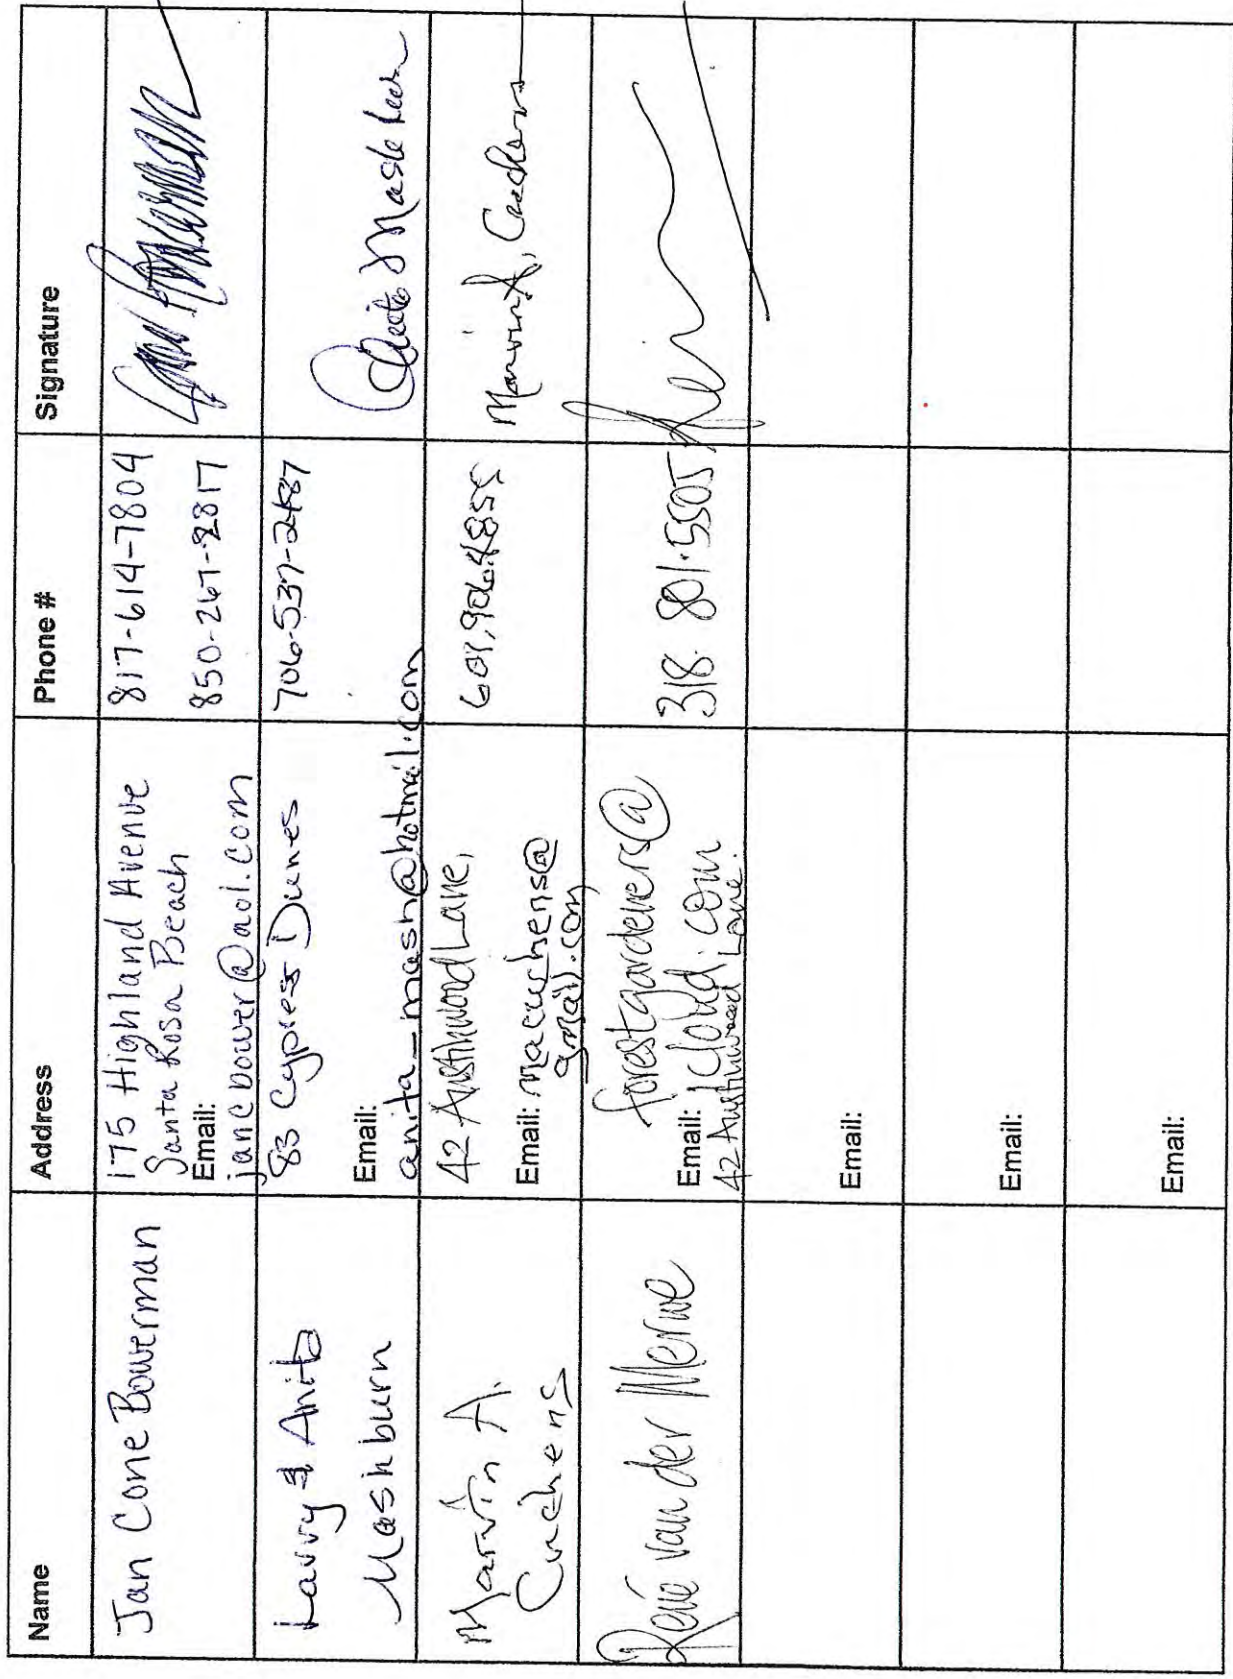 Name Address Phone # Signature
Jan Cone Bowerman
175 Highland Avenue
Santa Rosa Beach
Email:
janCbower@aol.com
817-614-7804
850-267-2817
Larry & Anita
Mashburn
83 Cypress Dunes
Email:
anita_mash@hotmail.com
706-537-2487
Marvin A.
Cuchens
42 Austinwood Lane,
Email: macuchens@
gmail.com
Marvin A. Cuchens
René van der Merwe
forestgardeners@
Email: icloud.com
42 Austinwood Lane.
318. 801.5505
Email:
Email:
Email: